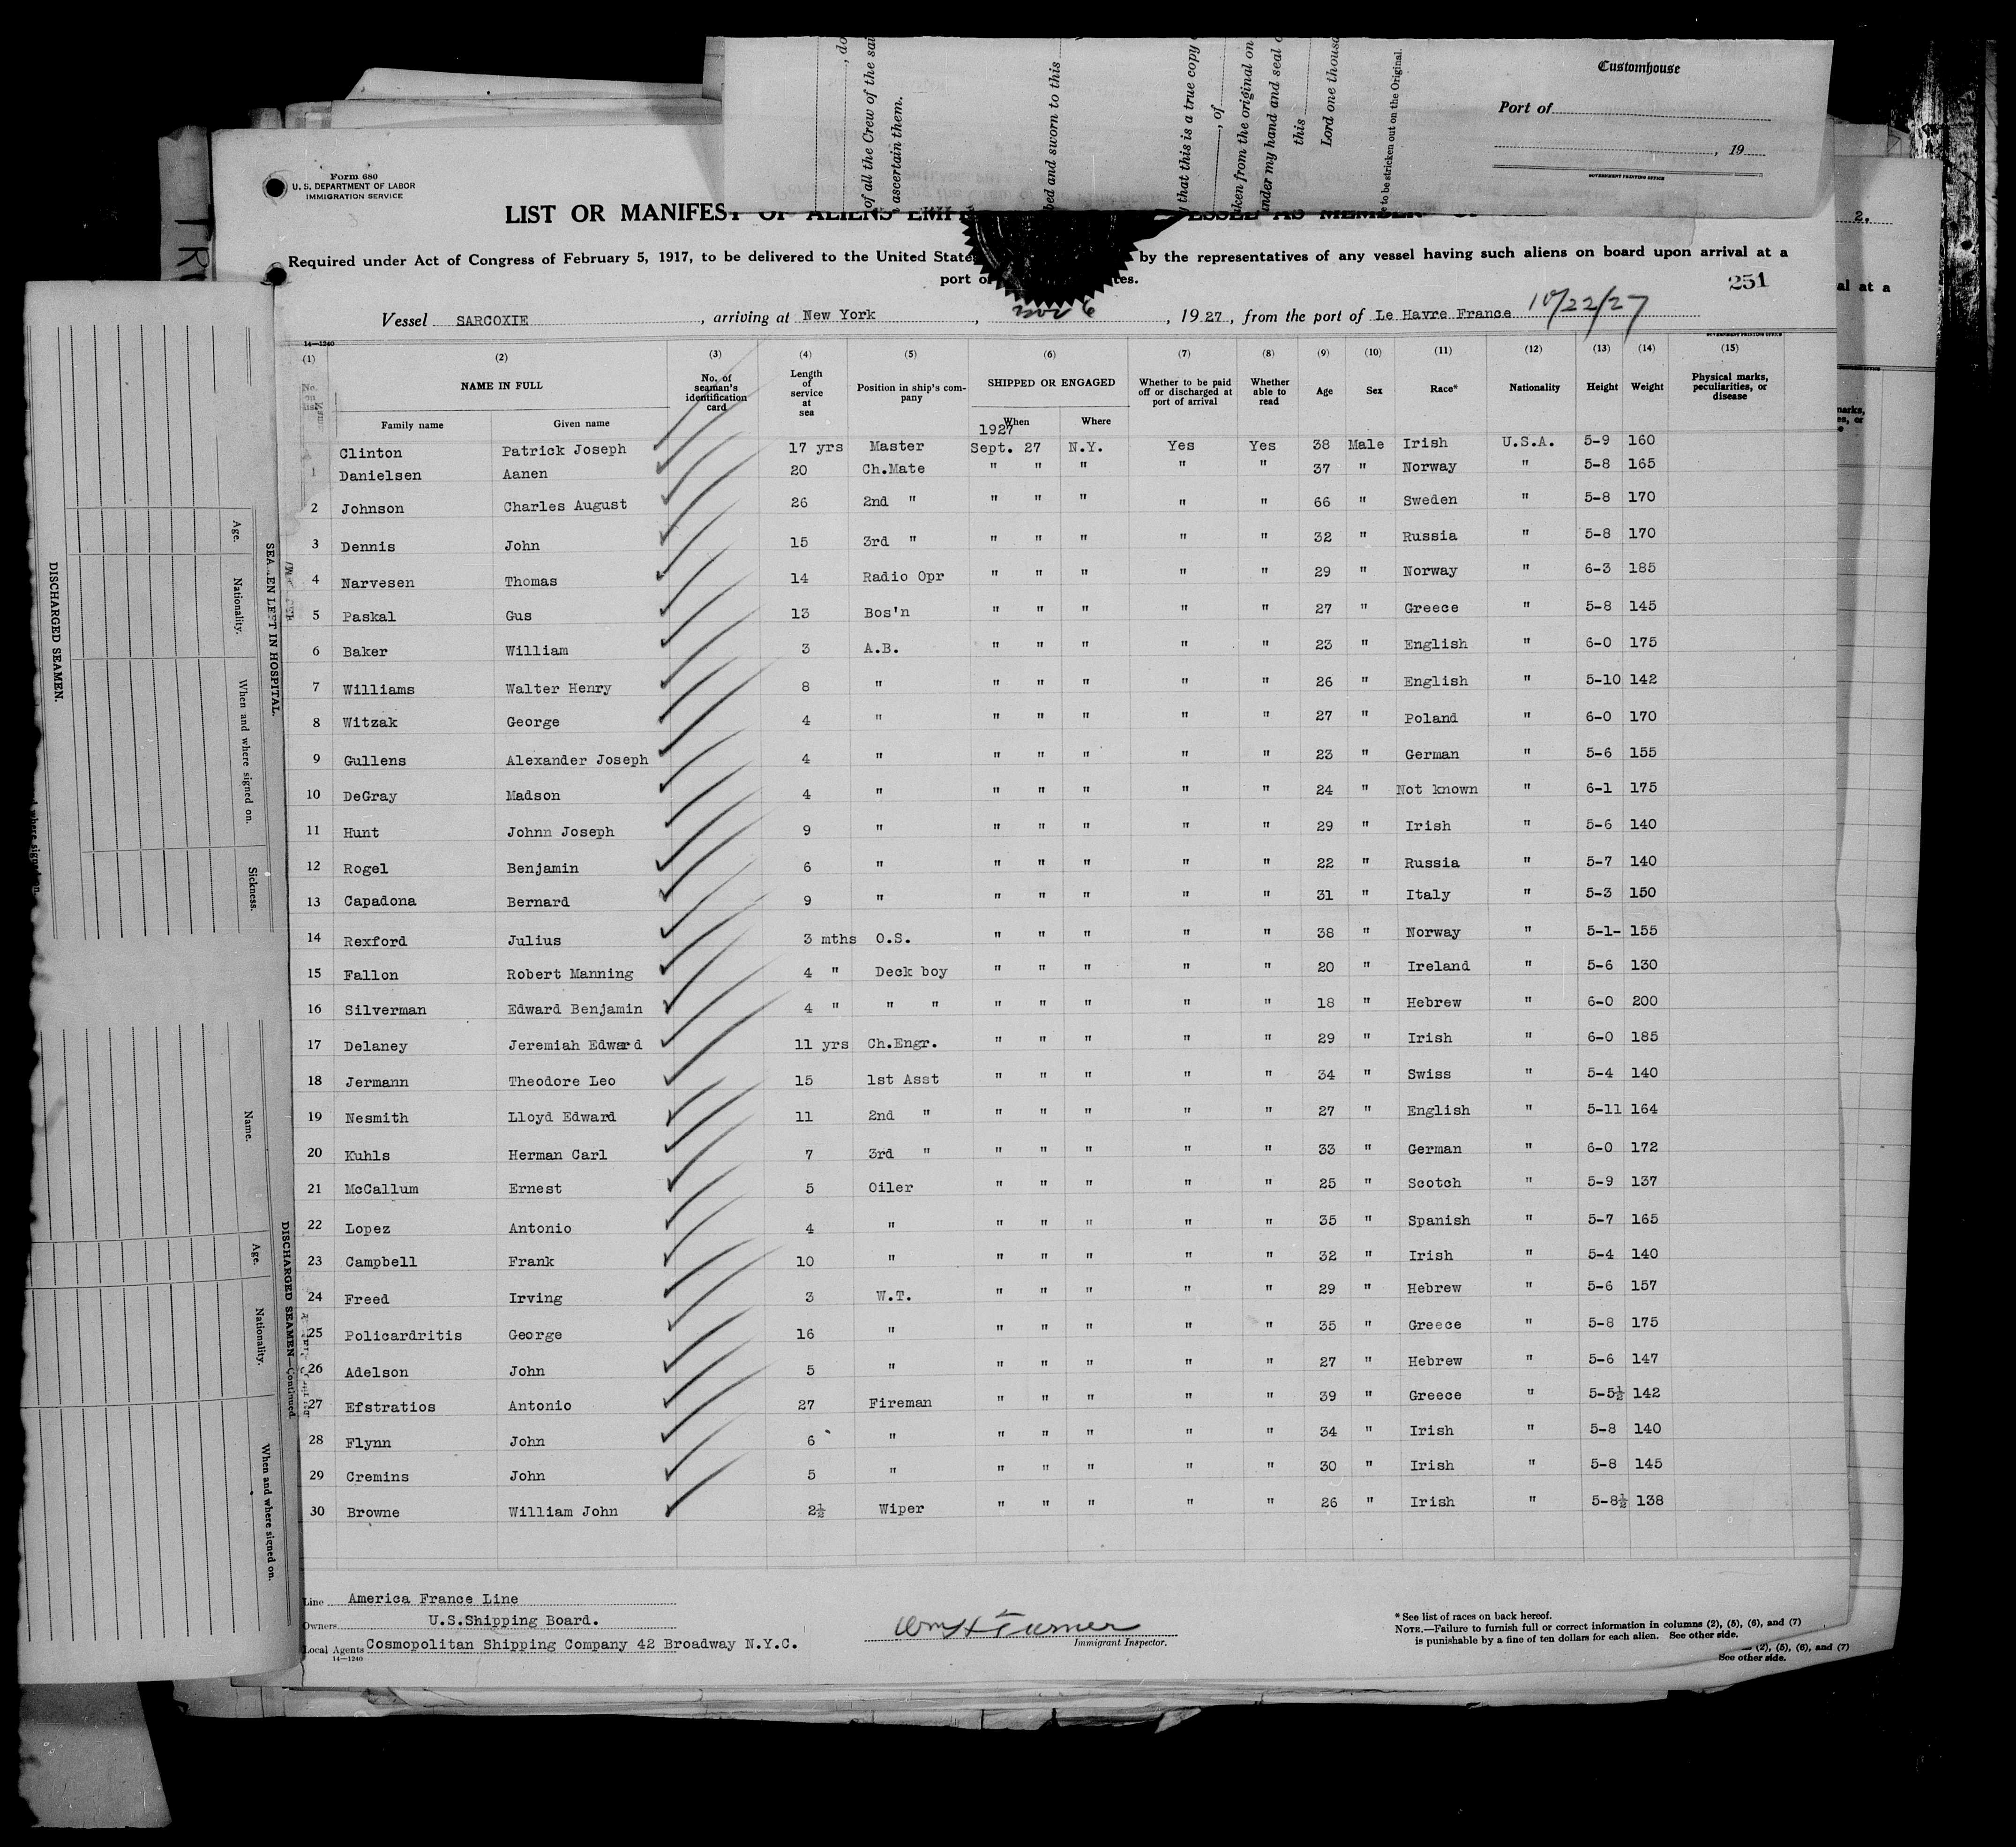 Customhouse
Port of
, 19
GOVERNMENT PRINTING OFFICE
, do
of all the Crew of the sai
ascertain them.
bed and sworn to this
that this is a true copy
, of
ken from the original on
nder my hand and seal o
this
Lord one thousa
e to be stricken out on the Original.
Form 680
U. S. DEPARTMENT OF LABOR
IMMIGRATION SERVICE
2.
LIST OR MANIFEST OF ALIENS EMP ESSEL AS MEMBER
Required under Act of Congress of February 5, 1917, to be delivered to the United State by the representatives of any vessel having such aliens on board upon arrival at a
port of tes.
251
al at a
Vessel SARCOXIE, arriving at New York, Nov 6, 1927, from the port of Le Havre France 10/22/27
14—1240
GOVERNMENT PRINTING OFFICE
(1) (2) (3) (4) (5) (6) (7) (8) (9) (10) (11) (12) (13) (14) (15)
No. on list NAME IN FULL No. of seaman's identification card Length of service at sea Position in ship's company SHIPPED OR ENGAGED Whether to be paid off or discharged at port of arrival Whether able to read Age Sex Race* Nationality Height Weight Physical marks, peculiarities, or disease
Family name Given name When Where
1927
Clinton Patrick Joseph 17 yrs Master Sept. 27 N.Y. Yes Yes 38 Male Irish U.S.A. 5-9 160
1 Danielsen Aanen 20 Ch.Mate " " " " " 37 " Norway " 5-8 165
2 Johnson Charles August 26 2nd " " " " " " 66 " Sweden " 5-8 170
3 Dennis John 15 3rd " " " " " " 32 " Russia " 5-8 170
4 Narvesen Thomas 14 Radio Opr " " " " " 29 " Norway " 6-3 185
5 Paskal Gus 13 Bos'n " " " " " 27 " Greece " 5-8 145
6 Baker William 3 A.B. " " " " " 23 " English " 6-0 175
7 Williams Walter Henry 8 " " " " " " 26 " English " 5-10 142
8 Witzak George 4 " " " " " " 27 " Poland " 6-0 170
9 Gullens Alexander Joseph 4 " " " " " " 23 " German " 5-6 155
10 DeGray Madson 4 " " " " " " 24 " Not known " 6-1 175
11 Hunt Johnn Joseph 9 " " " " " " 29 " Irish " 5-6 140
12 Rogel Benjamin 6 " " " " " " 22 " Russia " 5-7 140
13 Capadona Bernard 9 " " " " " " 31 " Italy " 5-3 150
14 Rexford Julius 3 mths O.S. " " " " " 38 " Norway " 5-1- 155
15 Fallon Robert Manning 4 " Deck boy " " " " " 20 " Ireland " 5-6 130
16 Silverman Edward Benjamin 4 " " " " " " " " 18 " Hebrew " 6-0 200
17 Delaney Jeremiah Edward 11 yrs Ch.Engr. " " " " " 29 " Irish " 6-0 185
18 Jermann Theodore Leo 15 1st Asst " " " " " 34 " Swiss " 5-4 140
19 Nesmith Lloyd Edward 11 2nd " " " " " " 27 " English " 5-11 164
20 Kuhls Herman Carl 7 3rd " " " " " " 33 " German " 6-0 172
21 McCallum Ernest 5 Oiler " " " " " 25 " Scotch " 5-9 137
22 Lopez Antonio 4 " " " " " " 35 " Spanish " 5-7 165
23 Campbell Frank 10 " " " " " " 32 " Irish " 5-4 140
24 Freed Irving 3 W.T. " " " " " 29 " Hebrew " 5-6 157
25 Policardritis George 16 " " " " " " 35 " Greece " 5-8 175
26 Adelson John 5 " " " " " " 27 " Hebrew " 5-6 147
27 Efstratios Antonio 27 Fireman " " " " " 39 " Greece " 5-5½ 142
28 Flynn John 6 " " " " " " 34 " Irish " 5-8 140
29 Cremins John 5 " " " " " " 30 " Irish " 5-8 145
30 Browne William John 2½ Wiper " " " " " 26 " Irish " 5-8½ 138
Line America France Line
Owners U.S.Shipping Board.
Local Agents Cosmopolitan Shipping Company 42 Broadway N.Y.C.
14—1240
Wm H Turner
Immigrant Inspector.
* See list of races on back hereof.
NOTE.—Failure to furnish full or correct information in columns (2), (5), (6), and (7)
is punishable by a fine of ten dollars for each alien. See other side.
(2), (5), (6), and (7)
See other side.
SEAMEN LEFT IN HOSPITAL.
Age.
Nationality.
When and where signed on.
Sickness.
DISCHARGED SEAMEN.
DISCHARGED SEAMEN—Continued.
Name.
Age.
Nationality.
When and where signed on.